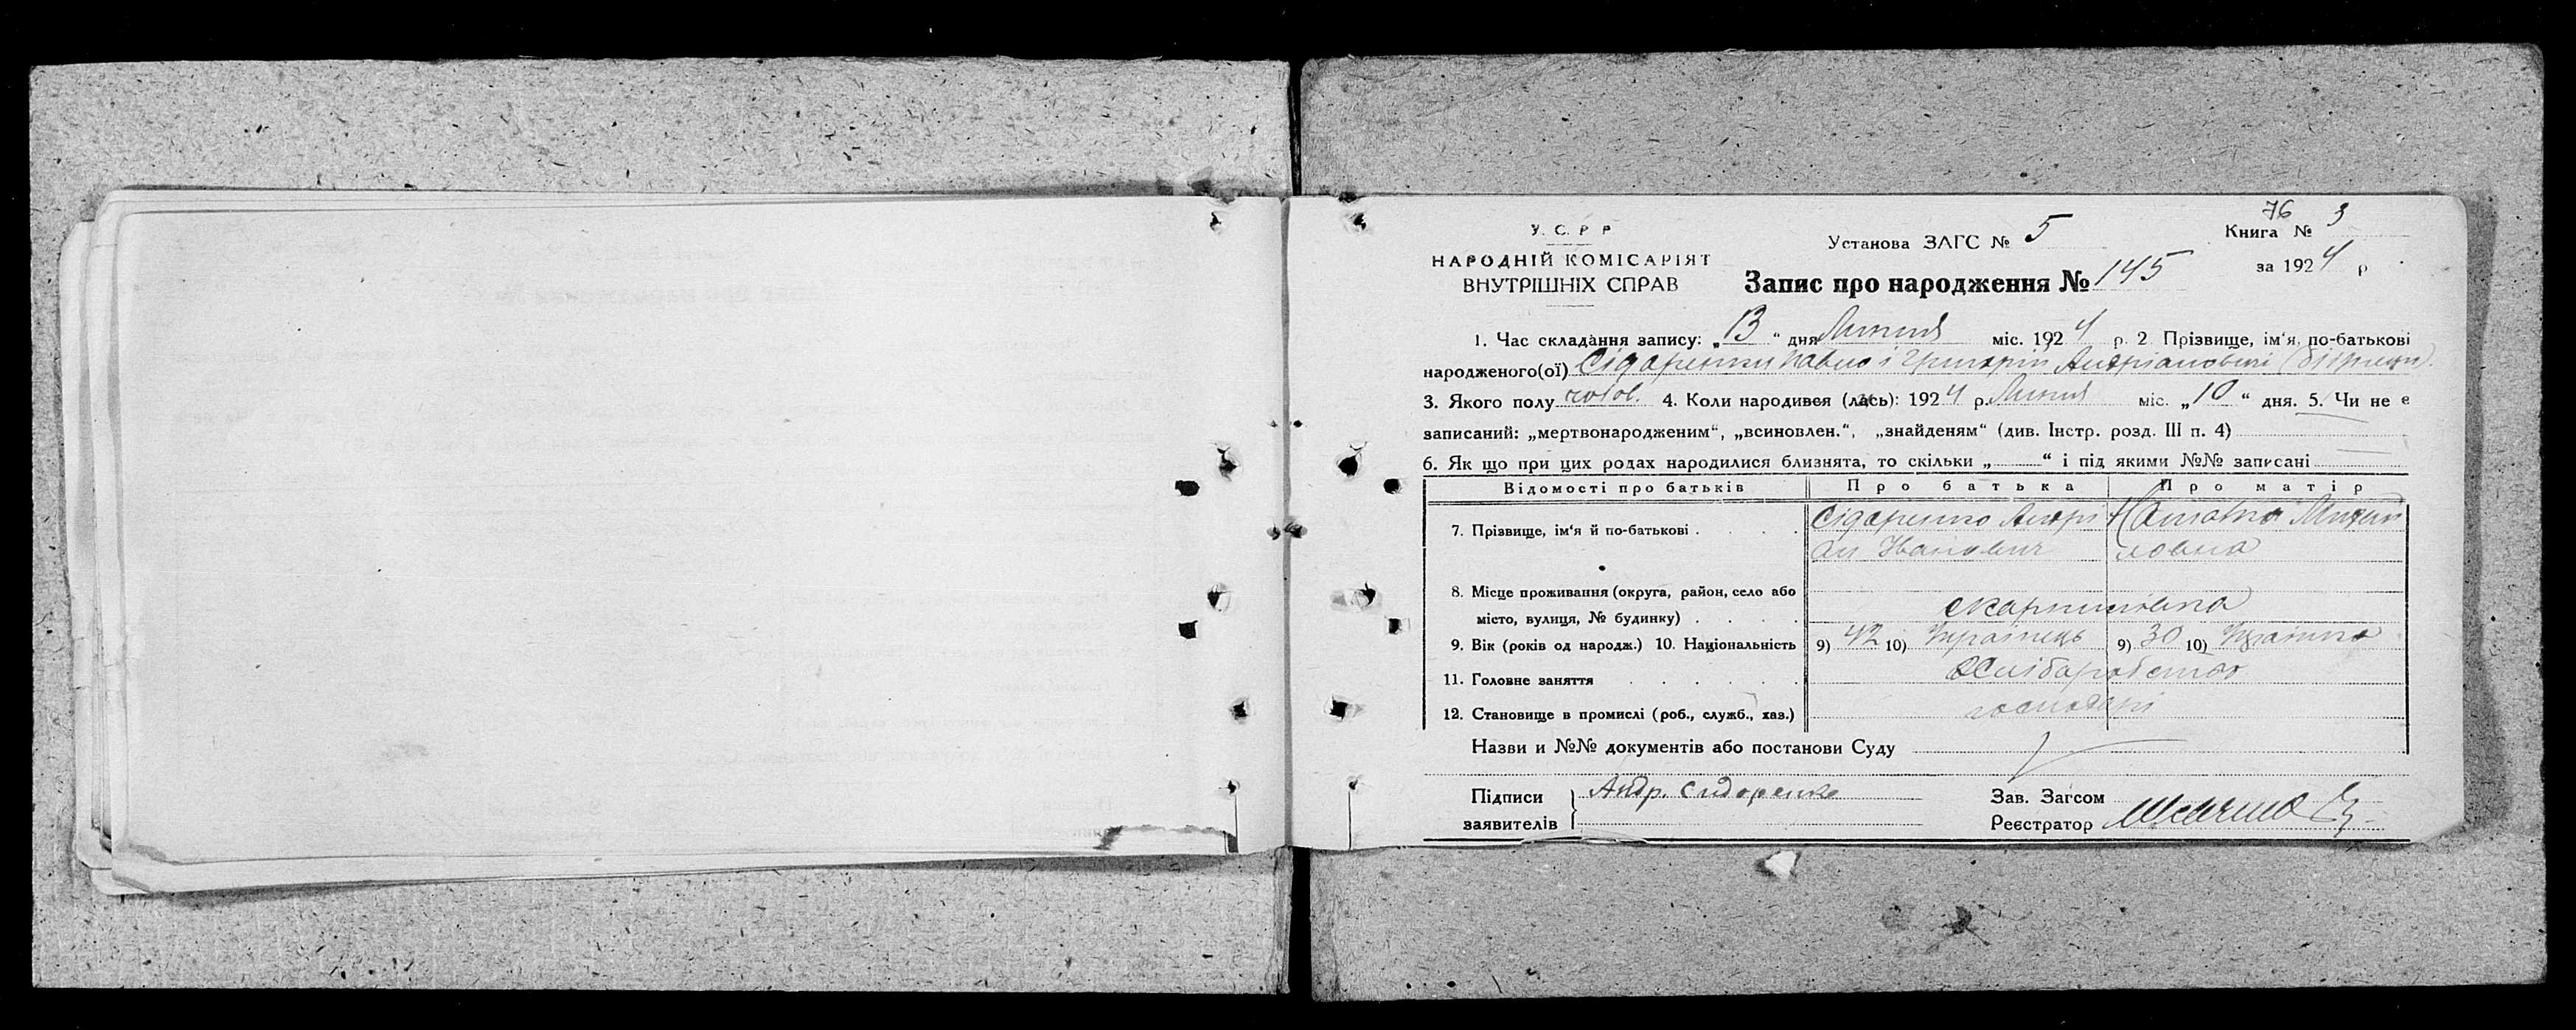 76
У. С. Р Р
Установа ЗАГС № 5
Книга № 3
НАРОДНІЙ КОМІСАРІЯТ
ВНУТРІШНІХ СПРАВ
Запис про народження № 145
за 1924 р
1. Час складання запису: „13“ дня Липня міс. 1924 р. 2 Прізвище, ім'я, по-батькові
народженого(ої) Сідаренки Павло і Григорій Андріановичі
3. Якого полу чолов. 4. Коли народився (лась): 1924 р. Липня міс. „10“ дня. 5. Чи не є
записаний: „мертвонародженим“, „всиновлен.“, „знайденям“ (див. Інстр. розд. III п. 4)
6. Як що при цих родах народилися близнята, то скільки „ “ і під якими №№ записані
Відомості про батьків Про батька Про матір
7. Прізвище, ім'я й по-батькові . . . . Сідаренко Андрі Наталка Михай
ан Іванович ловна
8. Місце проживання (округа, район, село або
місто, вулиця, № будинку) . . . .
9. Вік (років од народж.) 10. Національність 9) 42 10) Українець 9) 30 10) Українка
11. Головне заняття . . . . . Хліборобство
12. Становище в промислі (роб., служб., хаз.) господарі
Назви и №№ документів або постанови Суду
Підписи Андр. Сидоренко Зав. Загсом
заявителів Реєстратор